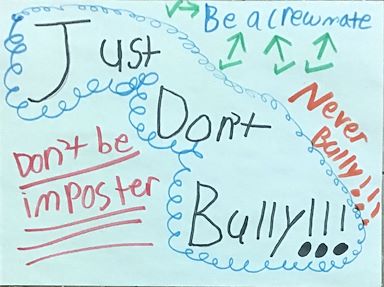 Be a crewmate
Just
Don't
Bully!!!
Never
Bully!!!
Don't be
imposter